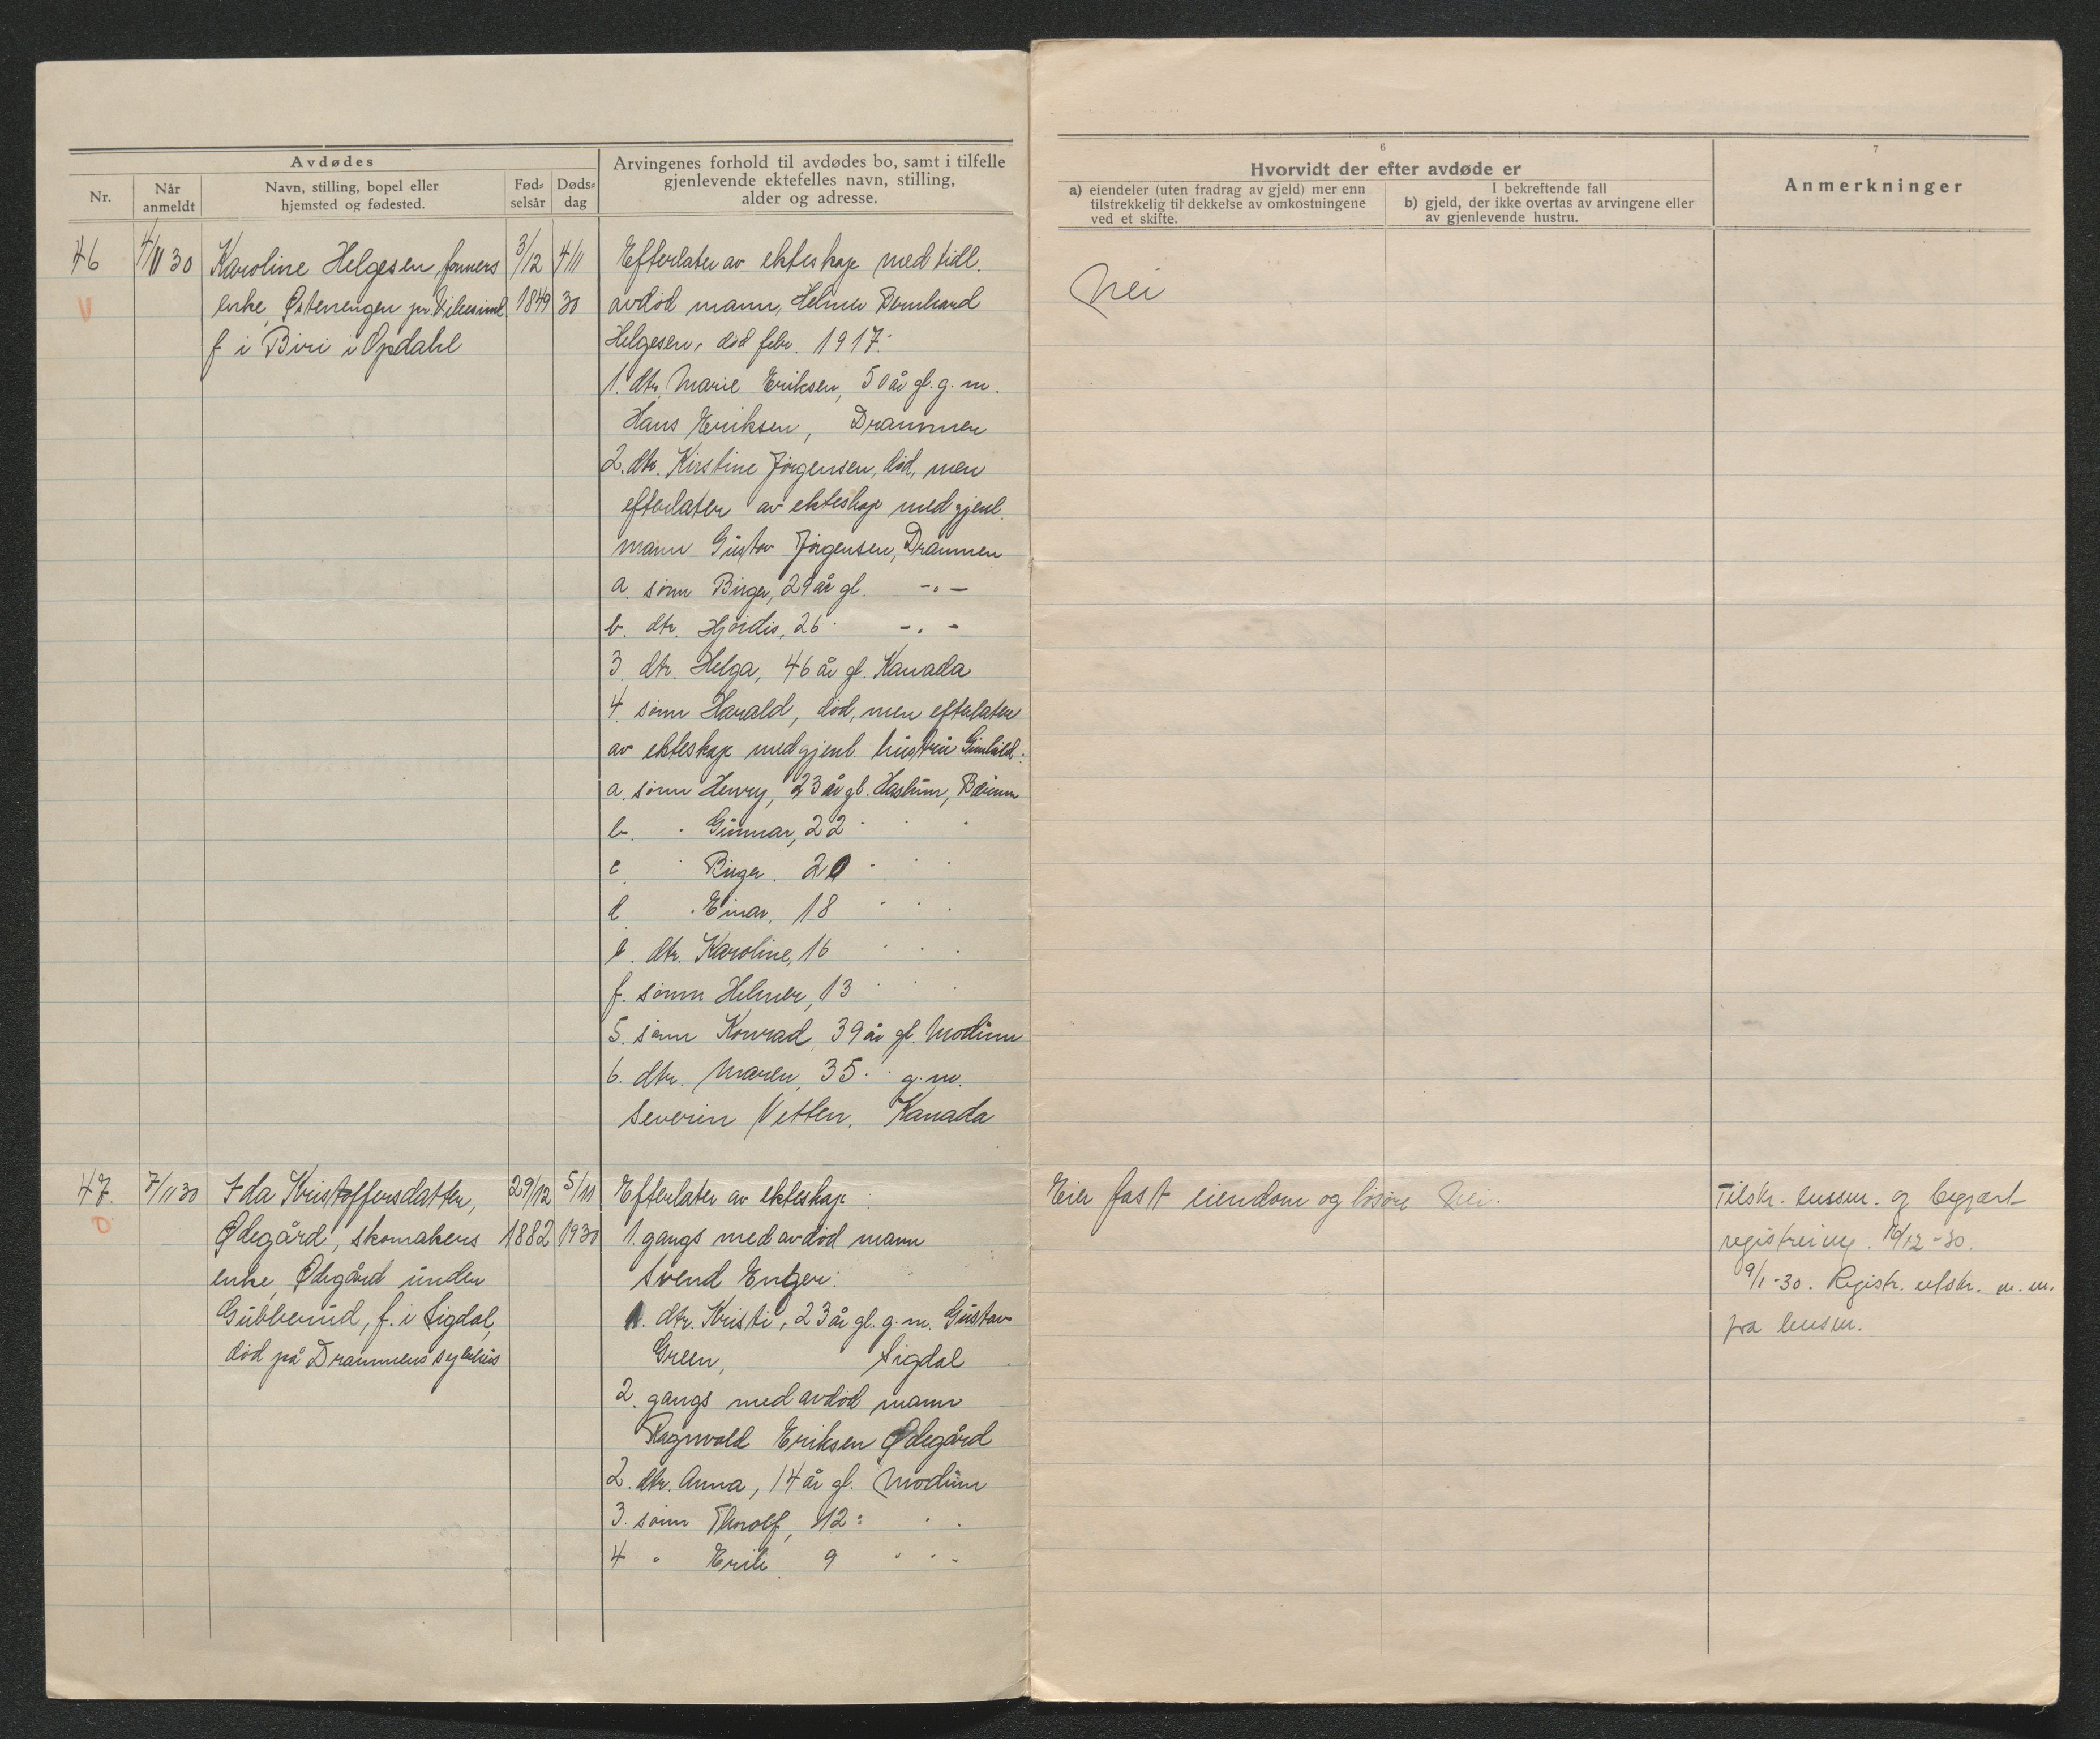 Avdødes
Nr.
Når anmeldt
Navn, stilling, bopel eller hjemsted og fødested.
Fød- selsår
Døds- dag
Arvingenes forhold til avdødes bo, samt i tilfelle
gjenlevende ektefelles navn, stilling,
alder og adresse.
6
Hvorvidt der efter avdøde er
a) eiendeler (uten fradrag av gjeld) mer enn
tilstrekkelig til dekkelse av omkostningene
ved et skifte.
I bekreftende fall
b) gjeld, der ikke overtas av arvingene eller
av gjenlevende hustru.
7
Anmerkninger
46
4/11 30
Karoline Helgesen formers
enke, Østerengen pr Vikesund
f i Biri i Opdahl
3/12
1849
4/11
30
Efterlater av ekteskap med tidl.
avdød mann, Helmer Bernhard
Helgesen, død febr. 1917:
1. dtr. Marie Eriksen, 50 år gl. g. m.
Hans Eriksen, Drammen
2. dtr. Kirstine Jørgensen, død, men
efterlater av ekteskap med gjenl.
mann Gustav Jørgensen, Drammen
a. sønn Birger, 29 år gl. -"-
b. dtr. Hjørdis, 26 " -"-
3. dtr. Helga, 46 år gl. Kanada
4. sønn Harald, død, men efterlater
av ekteskap med gjenl. hustru Gunhild:
a. sønn Henry, 23 år gl. Haslum, Bærum
b. " Gunnar, 22 " " "
c. " Birger. 20 " " "
d " Einar, 18 " " "
e. dtr. Karoline, 16 " " "
f. sønn Helmer, 13 " " "
5. sønn Konrad, 39 år gl. Modum
6. dtr. Maren, 35 " " g. m.
Severin Vetten, Kanada
Nei
47.
7/11 30
Ida Kristoffersdatter,
Ødegård, skomakers
enke, Ødegård under
Gubberud, f. i Sigdal,
død på Drammens sykehus
29/12
1882
5/11
1930
Efterlater av ekteskap:
1. gangs med avdød mann
Svend Enger:
1. dtr. Kristi, 23 år gl. g. m. Gustav
Green, Sigdal
2. gangs med avdød mann
Ragnvald Eriksen Ødegård
2. dtr. Anna, 14 år gl. Modum
3. sønn Thorolf, 12 " " "
4 " Erik, 9 " " "
Eier fast eiendom og løsøre
Nei.
Tilskr. lensm. og begjært
registrering. 16/12-30.
9/1-30. Registr. utskr. m. m.
fra lensm.